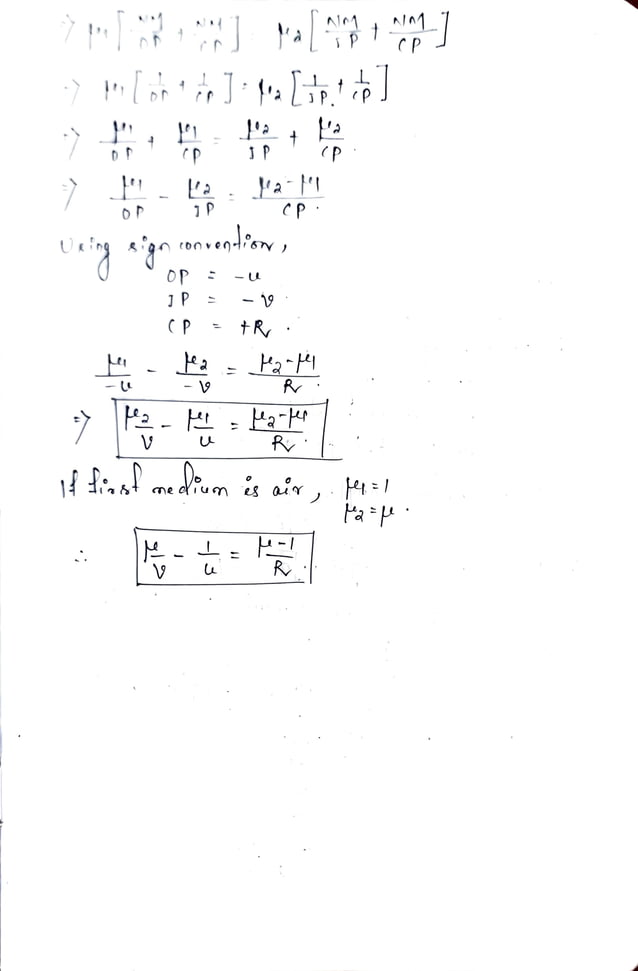 ⇒ μ1 [ NM/OP + NM/CP ] μ2 [ NM/IP + NM/CP ]
⇒ μ1 [ 1/OP + 1/CP ] = μ2 [ 1/IP. + 1/CP ]
⇒ μ1/OP + μ1/CP = μ2/IP + μ2/CP.
⇒ μ1/OP - μ2/IP = μ2-μ1/CP.
Using sign convention,
OP = -u
IP = -v.
CP = +R.
μ1/-u - μ2/-v = μ2-μ1/R.
⇒ μ2/v - μ1/u = μ2-μ1/R.
If first medium is air, μ1=1
μ2=μ.
∴ μ/v - 1/u = μ-1/R.